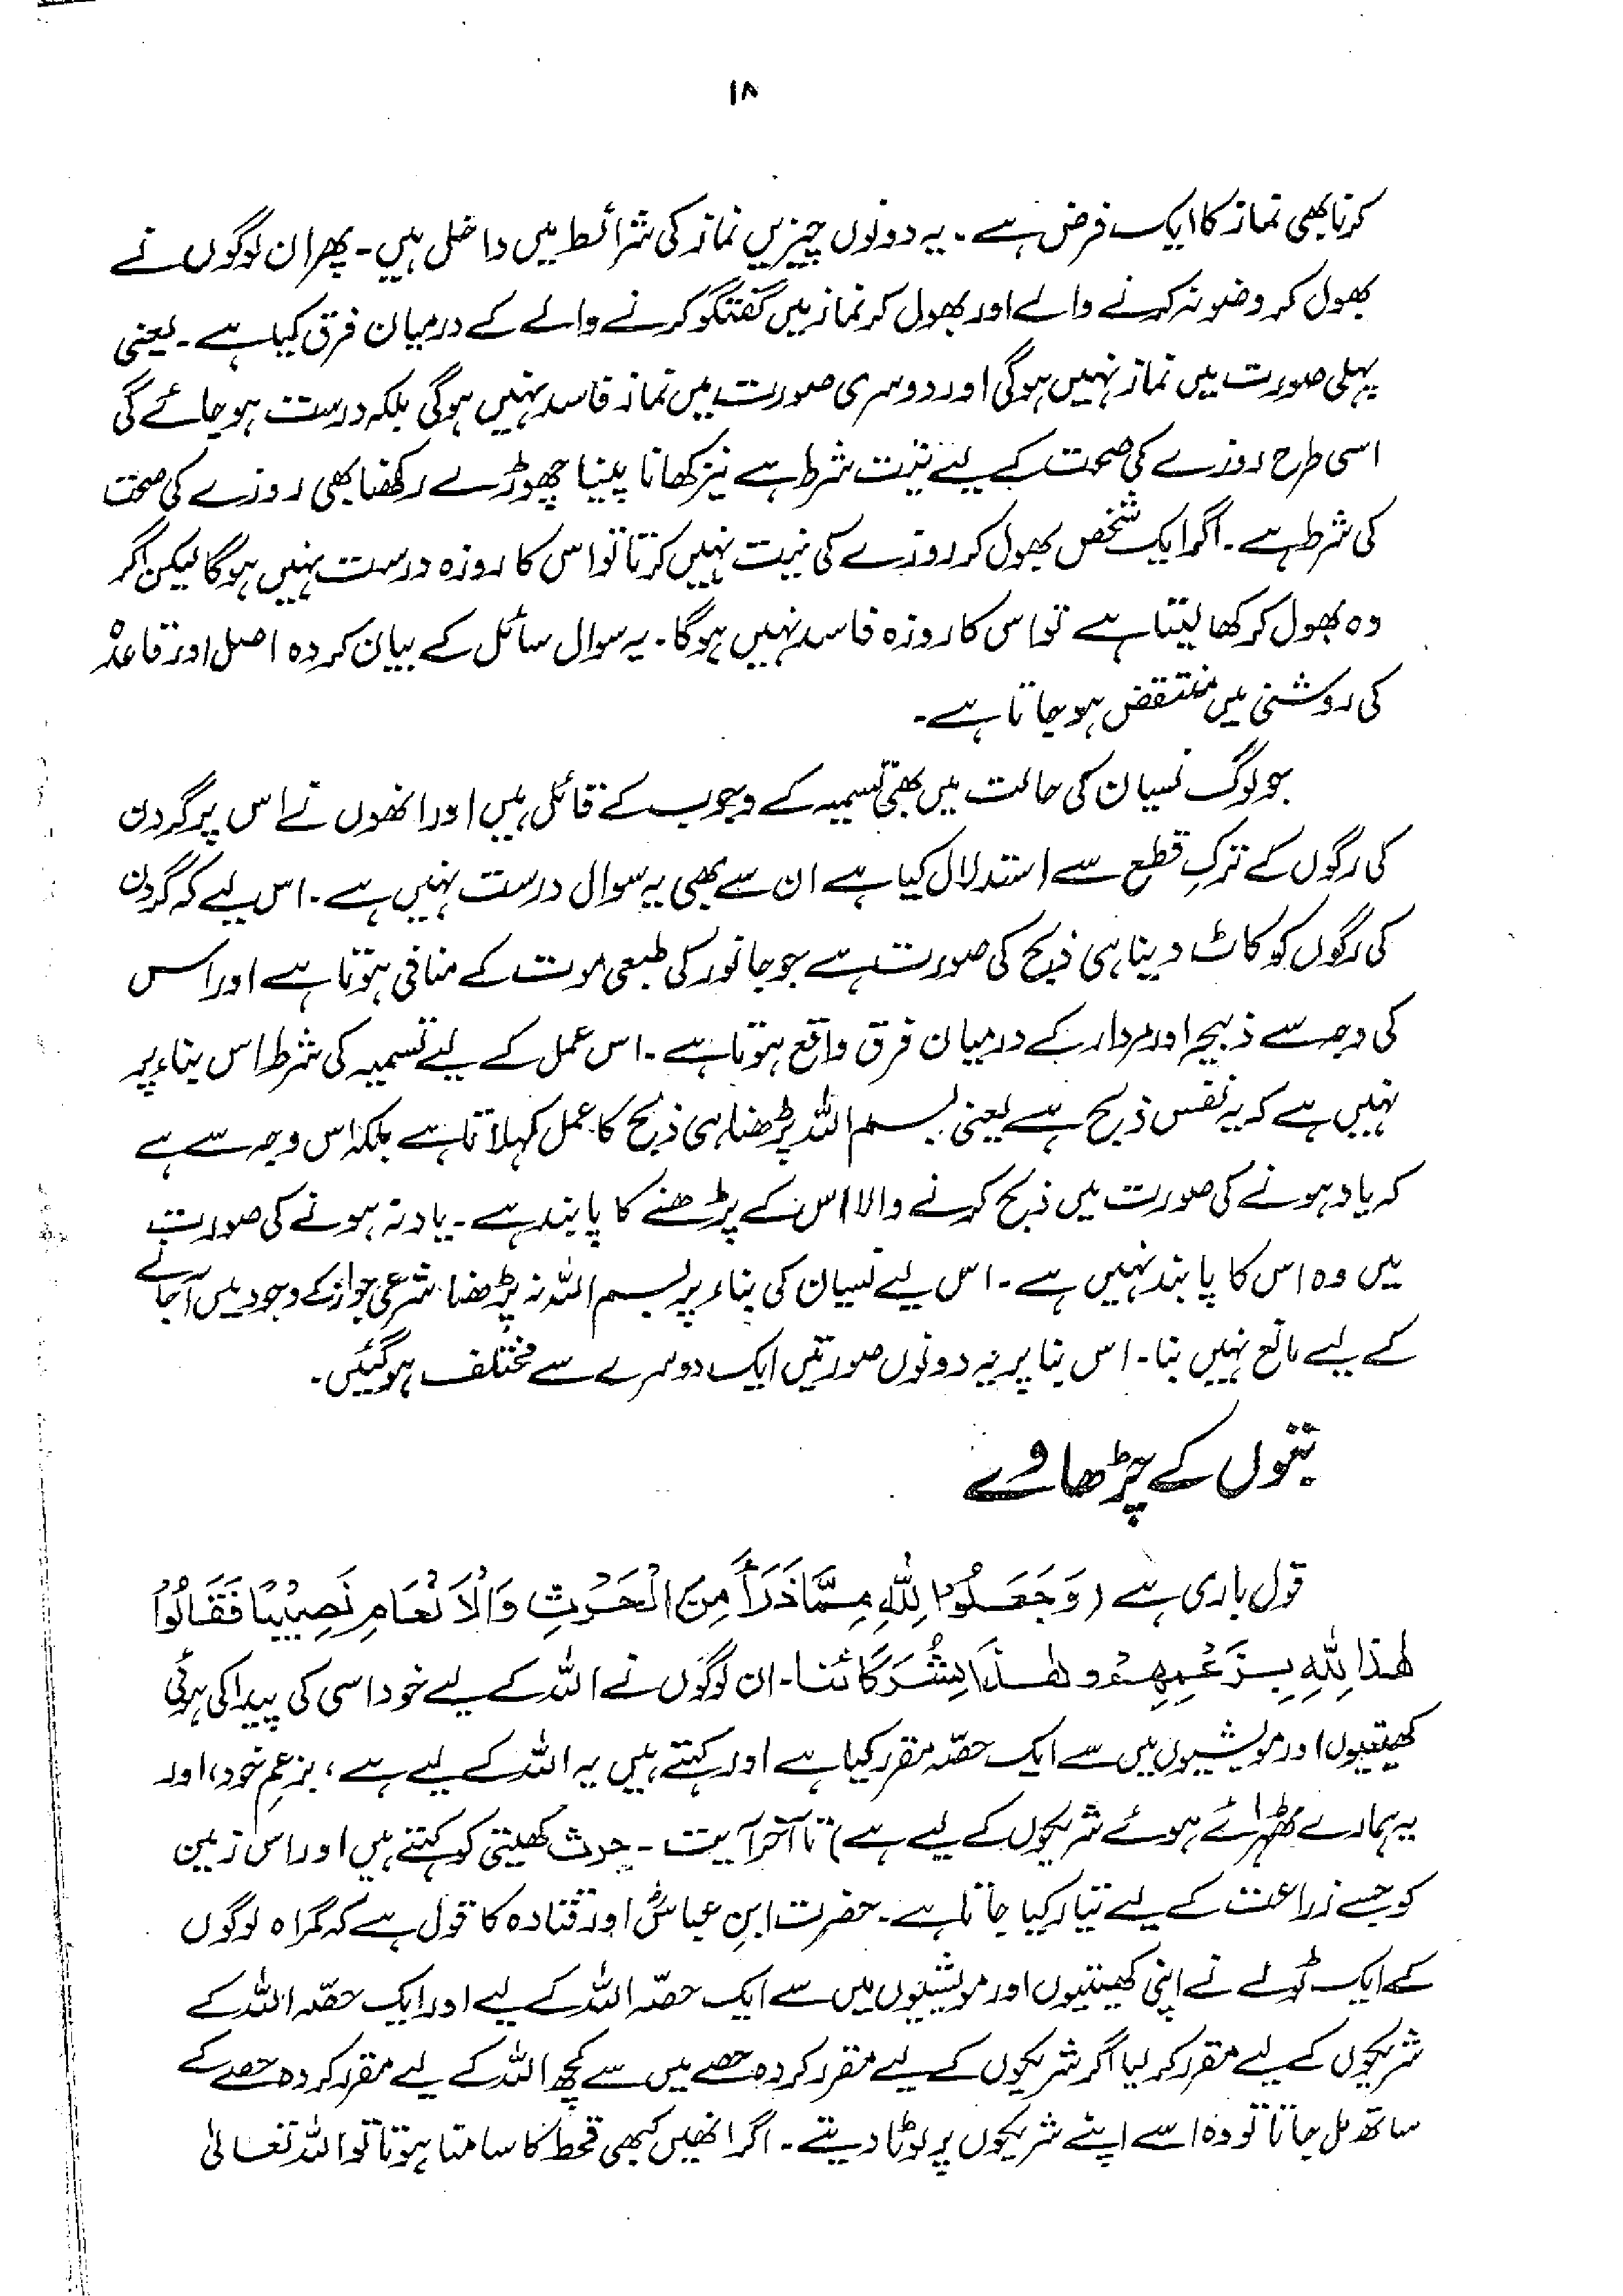 ۱۸
کرنا بھی نماز کا ایک فرض ہے۔ یہ دونوں چیزیں نماز کی شرائط میں داخل ہیں۔ پھر ان لوگوں نے
بھول کر وضو نہ کرنے والے اور بھول کر نماز میں گفتگو کرنے والے کے درمیان فرق کیا ہے۔ یعنی
پہلی صورت میں نماز نہیں ہوگی اور دوسری صورت میں نماز فاسد نہیں ہوگی بلکہ درست ہو جائے گی
اسی طرح روزے کی صحت کے لیے نیت شرط ہے نیز کھانا پینا چھوڑے رکھنا بھی روزے کی صحت
کی شرط ہے۔ اگر ایک شخص بھول کر روزے کی نیت نہیں کرتا تو اس کا روزہ درست نہیں ہوگا لیکن اگر
وہ بھول کر کھا لیتا ہے تو اس کا روزہ فاسد نہیں ہوگا۔ یہ سوال سائل کے بیان کردہ اصل اور قاعدہ
کی روشنی میں منتقض ہو جاتا ہے۔
جو لوگ نسیان کی حالت میں بھی تسمیہ کے وجوب کے قائل ہیں اور انھوں نے اس پر گردن
کی رگوں کے ترکِ قطع سے استدلال کیا ہے ان سے بھی یہ سوال درست نہیں ہے۔ اس لیے کہ گردن
کی رگوں کو کاٹ دینا ہی ذبح کی صورت ہے جو جانور کی طبعی موت کے منافی ہوتا ہے اور اس
کی وجہ سے ذبیحہ اور مردار کے درمیان فرق واقع ہوتا ہے۔ اس عمل کے لیے تسمیہ کی شرط اس بناء پر
نہیں ہے کہ یہ نفس ذبح ہے یعنی بسم اللہ پڑھنا ہی ذبح کا عمل کہلاتا ہے بلکہ اس وجہ سے ہے
کہ یاد ہونے کی صورت میں ذبح کرنے والا اس کے پڑھنے کا پابند ہے۔ یاد نہ ہونے کی صورت
میں وہ اس کا پابند نہیں ہے۔ اس لیے نسیان کی بناء پر بسم اللہ نہ پڑھنا شرعی جواز کے وجود میں آجانے
کے لیے مانع نہیں بنا۔ اس بنا پر یہ دونوں صورتیں ایک دوسرے سے مختلف ہو گئیں۔
بتوں کے چڑھاوے
قول باری ہے (وَجَعَلُوا لِلّٰهِ مِمَّا ذَرَأَ مِنَ الْحَرْثِ وَالْاَنْعَامِ نَصِيْبًا فَقَالُوْا
هٰذَا لِلّٰهِ بِزَعْمِهِمْ وهٰذَا لِشُرَكَائنا۔ ان لوگوں نے اللہ کے لیے خود اسی کی پیدا کی ہوئی
کھیتیوں اور مویشیوں میں سے ایک حصّہ مقرر کیا ہے اور کہتے ہیں یہ اللہ کے لیے ہے، بزعمِ خود، اور
یہ ہمارے ٹھہرائے ہوئے شریکوں کے لیے ہے) تا آخر آیت۔ حرث کھیتی کو کہتے ہیں اور اس زمین
کو جسے زراعت کے لیے تیار کیا جاتا ہے۔ حضرت ابن عباسؓ اور قتادہ کا قول ہے کہ گمراہ لوگوں
کے ایک ٹولے نے اپنی کھیتیوں اور مویشیوں میں سے ایک حصّہ اللہ کے لیے اور ایک حصّہ اللہ کے
شریکوں کے لیے مقرر کر لیا اگر شریکوں کے لیے مقرر کردہ حصے میں سے کچھ اللہ کے لیے مقرر کردہ حصے کے
ساتھ مل جاتا تو وہ اسے اپنے شریکوں پر لوٹا دیتے۔ اگر انھیں کبھی قحط کا سامنا ہوتا تو اللہ تعالیٰ